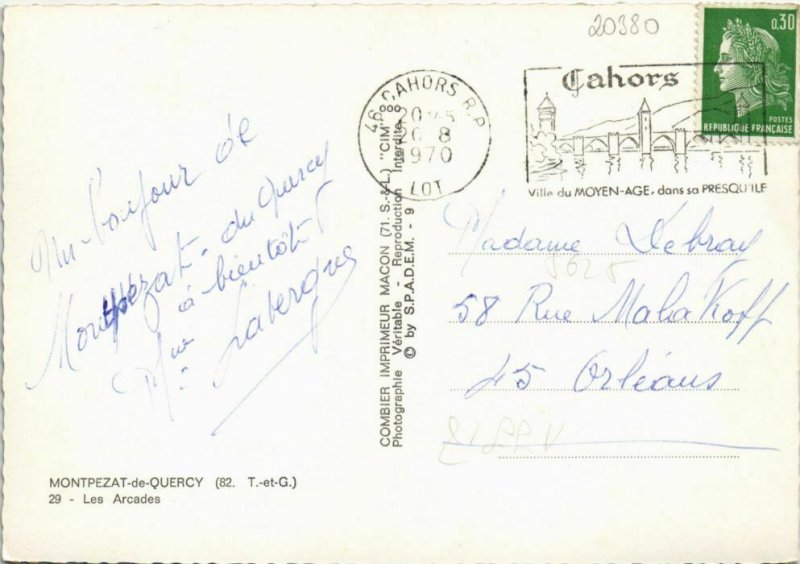 20380
Cahors
0.30
POSTES
REPUBLIQUE FRANÇAISE
46 CAHORS R.P.
20 8
1970
LOT
Ville du MOYEN-AGE, dans sa PRESQU'ILE
Un bonjour de
Montpézat-du-Quercy
à bientôt
COMBIER IMPRIMEUR MACON (71. S.-&-L.) "CIM"
Photographie Véritable - Reproduction Interdite
© by S.P.A.D.E.M. - 9
Madame Lebray
58 Rue Malakoff
45 Orléans
MONTPEZAT-de-QUERCY (82. T.-et-G.)
29 - Les Arcades